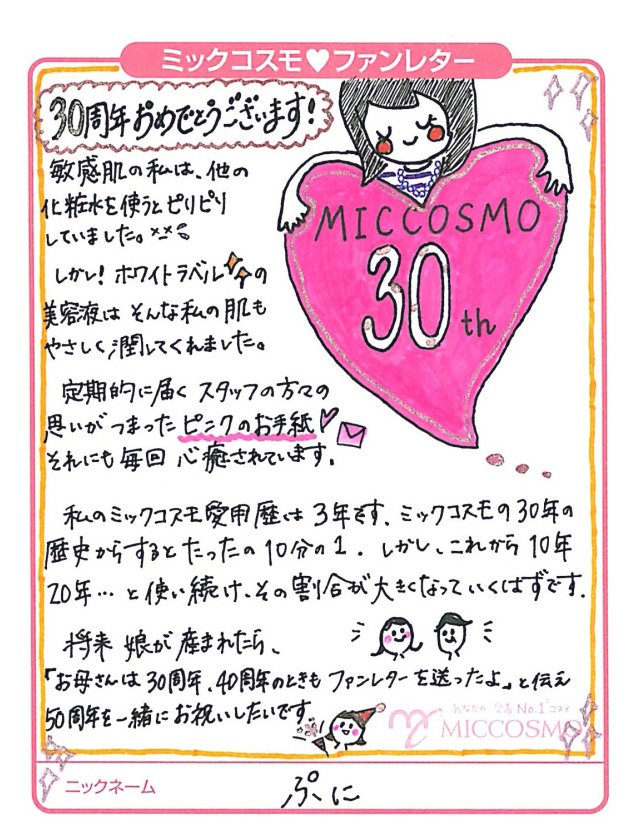 ミックコスモ♥ファンレター
30周年おめでとうございます!
敏感肌の私は、他の
化粧水を使うとピリピリ
していました。
しかし! ホワイトラベルの
美容液は そんな私の肌も
やさしく潤してくれました。
MICCOSMO
30th
定期的に届く スタッフの方々の
思いがつまった ピンクのお手紙
それにも毎回 心癒されています。
私のミックコスモ愛用歴は 3年です。ミックコスモの30年の
歴史からするとたったの 10分の1. しかし、これから 10年
20年… と使い続け、その割合が大きくなっていくはずです.
将来 娘が 産まれたら、
「お母さんは 30周年、40周年のときも ファンレターを送ったよ」と伝え
50周年を一緒にお祝いしたいです。
あなたの 愛着 No.1コスメ
MICCOSMO
ニックネーム
ぷに